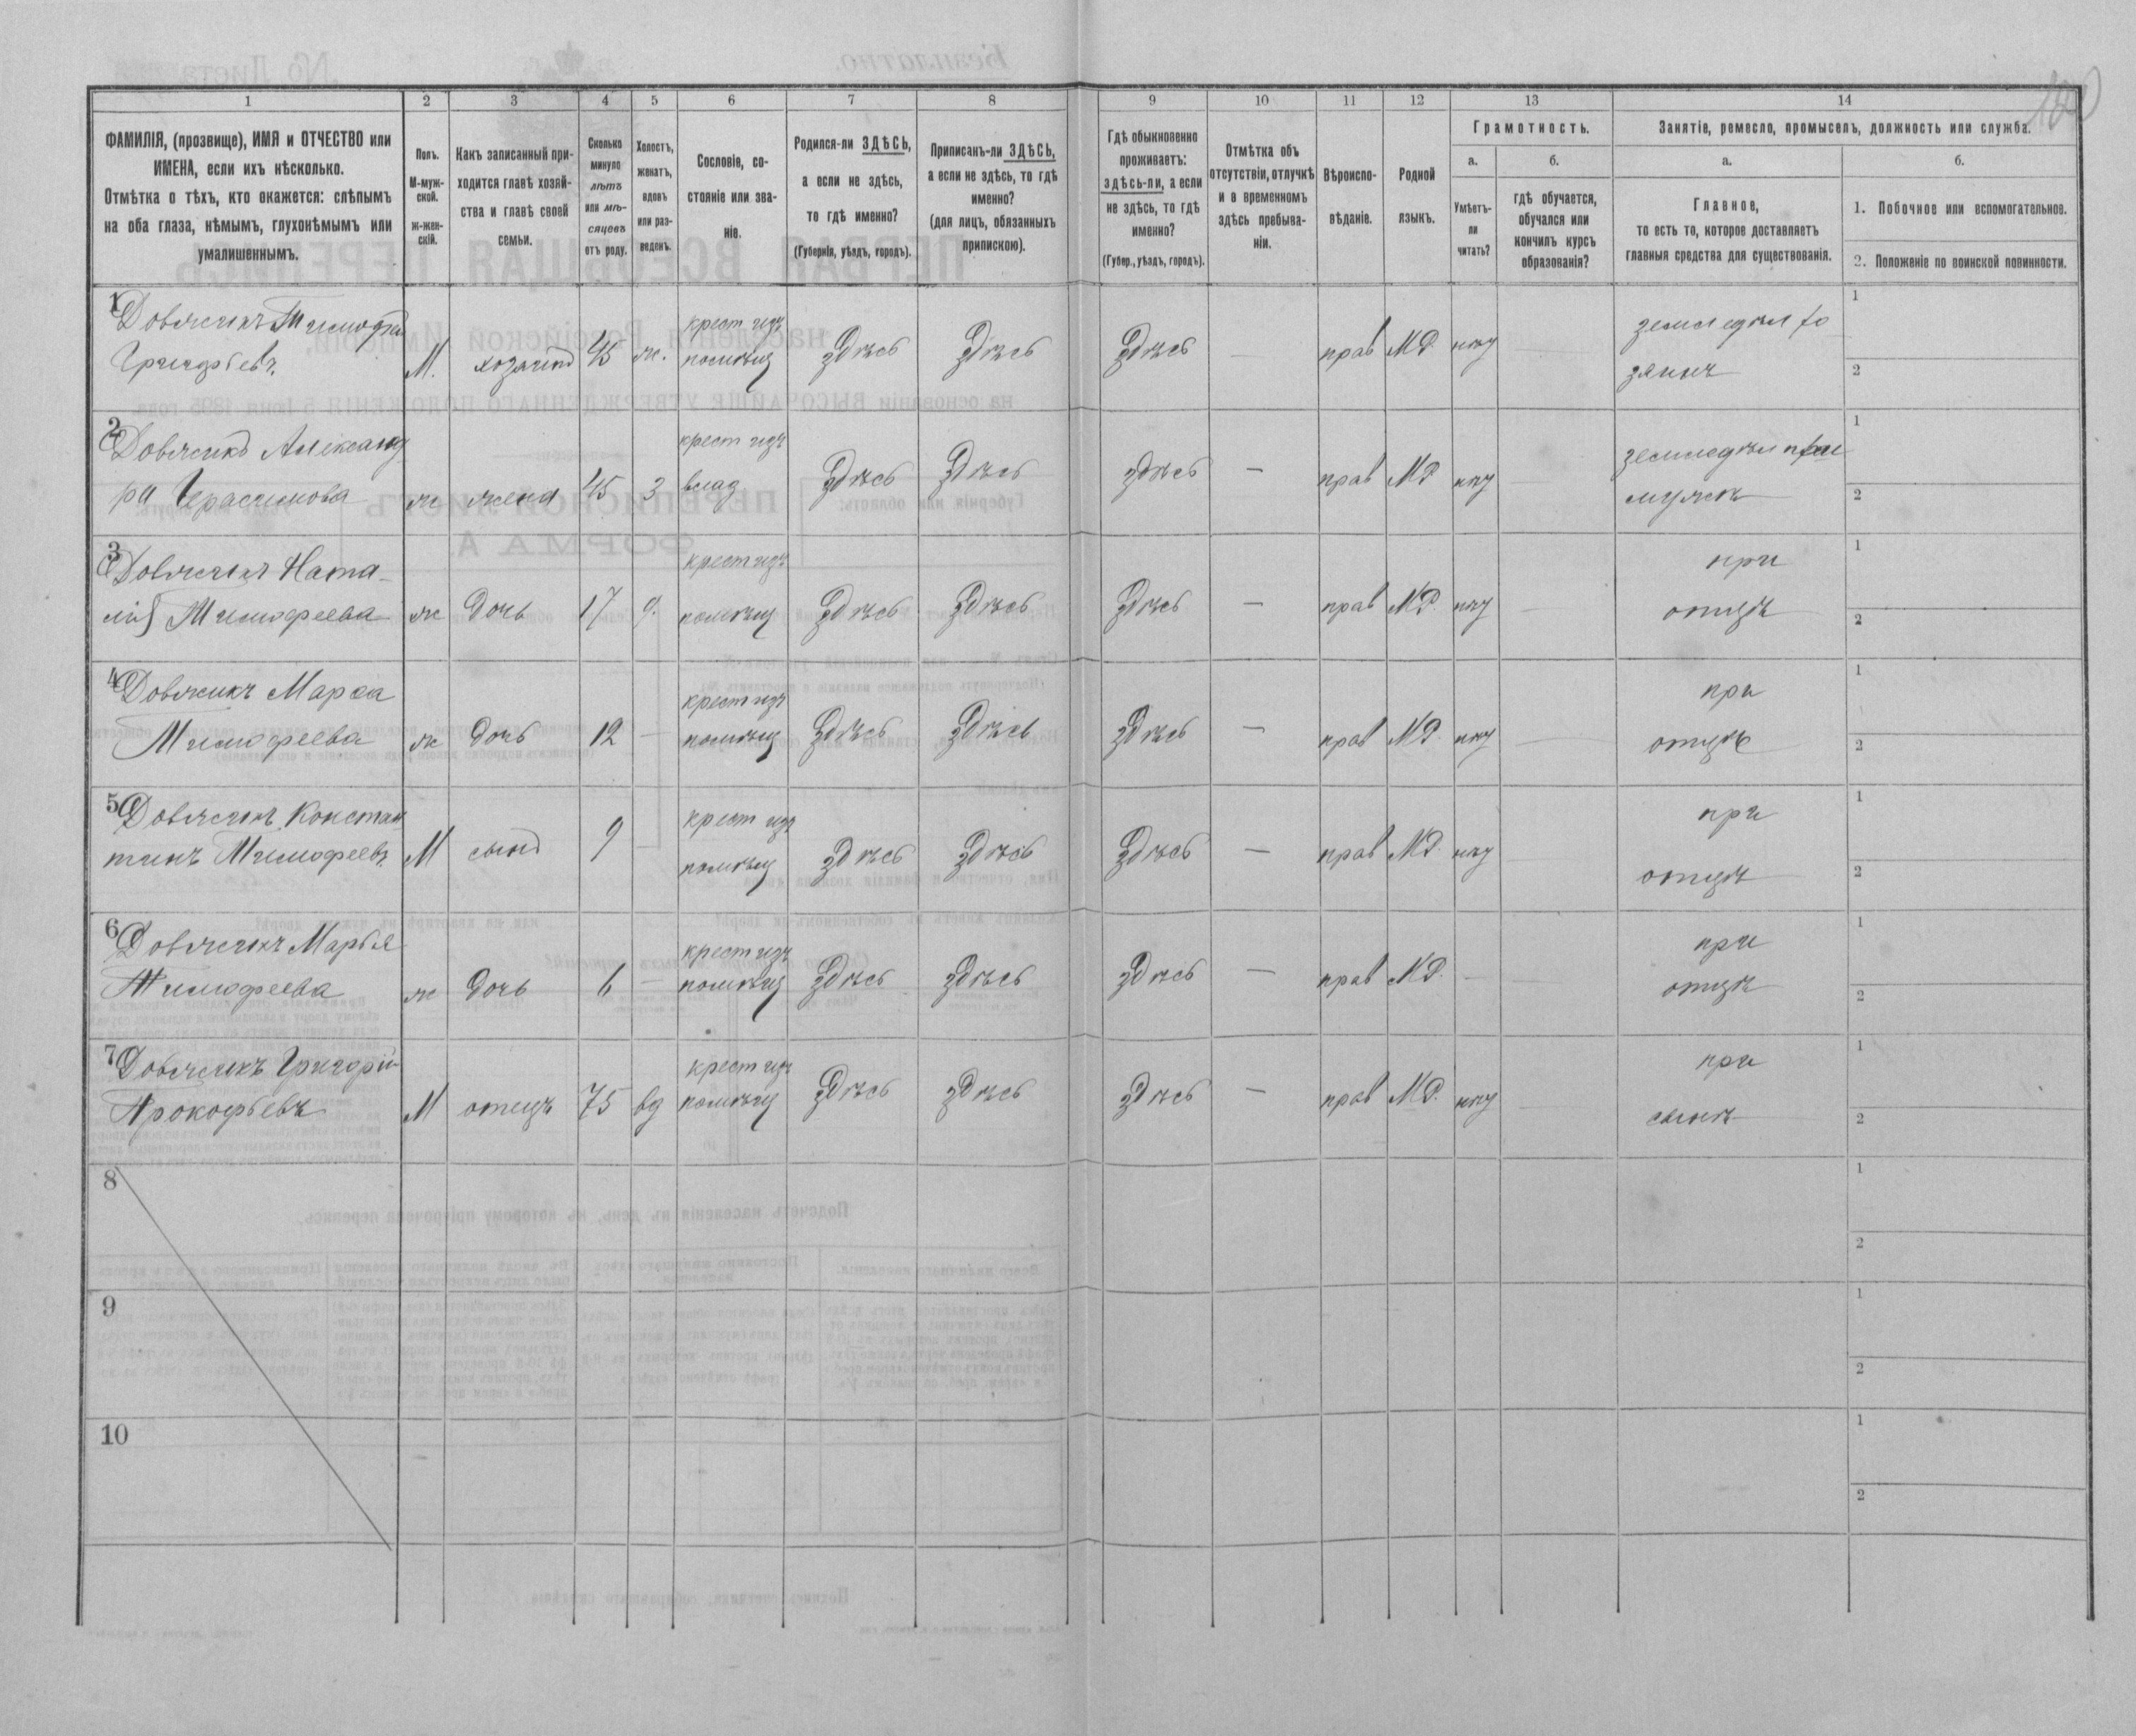 1 2 3 4 5 6 7 8 9 10 11 12 13 14
ФАМИЛІЯ, (прозвище), ИМЯ и ОТЧЕСТВО или
ИМЕНА, если ихъ нѣсколько.
Отмѣтка о тѣхъ, кто окажется: слѣпымъ
на оба глаза, нѣмымъ, глухонѣмымъ или
умалишеннымъ.
Полъ.
М-муж-
ской.
ж-жен-
скій.
Какъ записанный при-
ходится главѣ хозяй-
ства и главѣ своей
семьи.
Сколько
минуло
лѣтъ
или мѣ-
сяцевъ
отъ роду.
Холостъ,
женатъ,
вдовъ
или раз-
веденъ.
Сословіе, со-
стояніе или зва-
ніе.
Родился-ли ЗДѢСЬ,
а если не здѣсь,
то гдѣ именно?
(Губернія, уѣздъ, городъ).
Приписанъ-ли ЗДѢСЬ,
а если не здѣсь, то гдѣ
именно?
(для лицъ, обязанныхъ
припискою).
Гдѣ обыкновенно
проживаетъ:
здѣсь-ли, а если
не здѣсь, то гдѣ
именно?
(Губер., уѣздъ, городъ).
Отмѣтка объ
отсутствіи, отлучкѣ
и о временномъ
здѣсь пребыва-
ніи.
Вѣроиспо-
вѣданіе.
Родной
языкъ.
Грамотность.
а.
Умѣетъ-
ли
читать?
б.
гдѣ обучается,
обучался или
кончилъ курсъ
образованія?
Занятіе, ремесло, промыселъ, должность или служба.
а.
Главное,
то есть то, которое доставляетъ
главныя средства для существованія.
б.
1. Побочное или вспомогательное.
2. Положеніе по воинской повинности.
1 Довжикъ Тимофей
крест изъ
1
Григорьевъ
М. хозяинъ 45 ж. помѣщ здѣсь здѣсь здѣсь — прав МР. нѣу —
2
2 Довжикъ Александ
крест изъ
1
ра Герасимова ж жена 45 з влад здѣсь здѣсь здѣсь — прав МР нѣу
мужѣ
2
3 Довжикъ Ната-
крест изъ
при
1
лія Тимофеева ж дочь 17 д. помѣщ здѣсь здѣсь здѣсь — прав МР. нѣу
отцѣ
2
4 Довжикъ Марфа
крест изъ
при
1
Тимофеева ж дочь 12 — помѣщ здѣсь здѣсь здѣсь — прав МР. нѣу —
отцѣ
2
5 Довжикъ Констан
крест изъ
при
1
тинъ Тимофеевъ М сынъ 9 — помѣщ здѣсь здѣсь здѣсь — прав МР. нѣу
отцѣ
2
6 Довжикъ Марья
крест изъ
при
1
Тимофеева ж дочь 6 — помѣщ здѣсь здѣсь здѣсь — прав МР. —
отцѣ
2
7 Довжикъ Григорій
крест изъ
при
1
Прокофьевъ М отецъ 75 вд помѣщ здѣсь здѣсь здѣсь — прав МР. нѣу
сынѣ
2
8
1
2
9
1
2
10
1
2